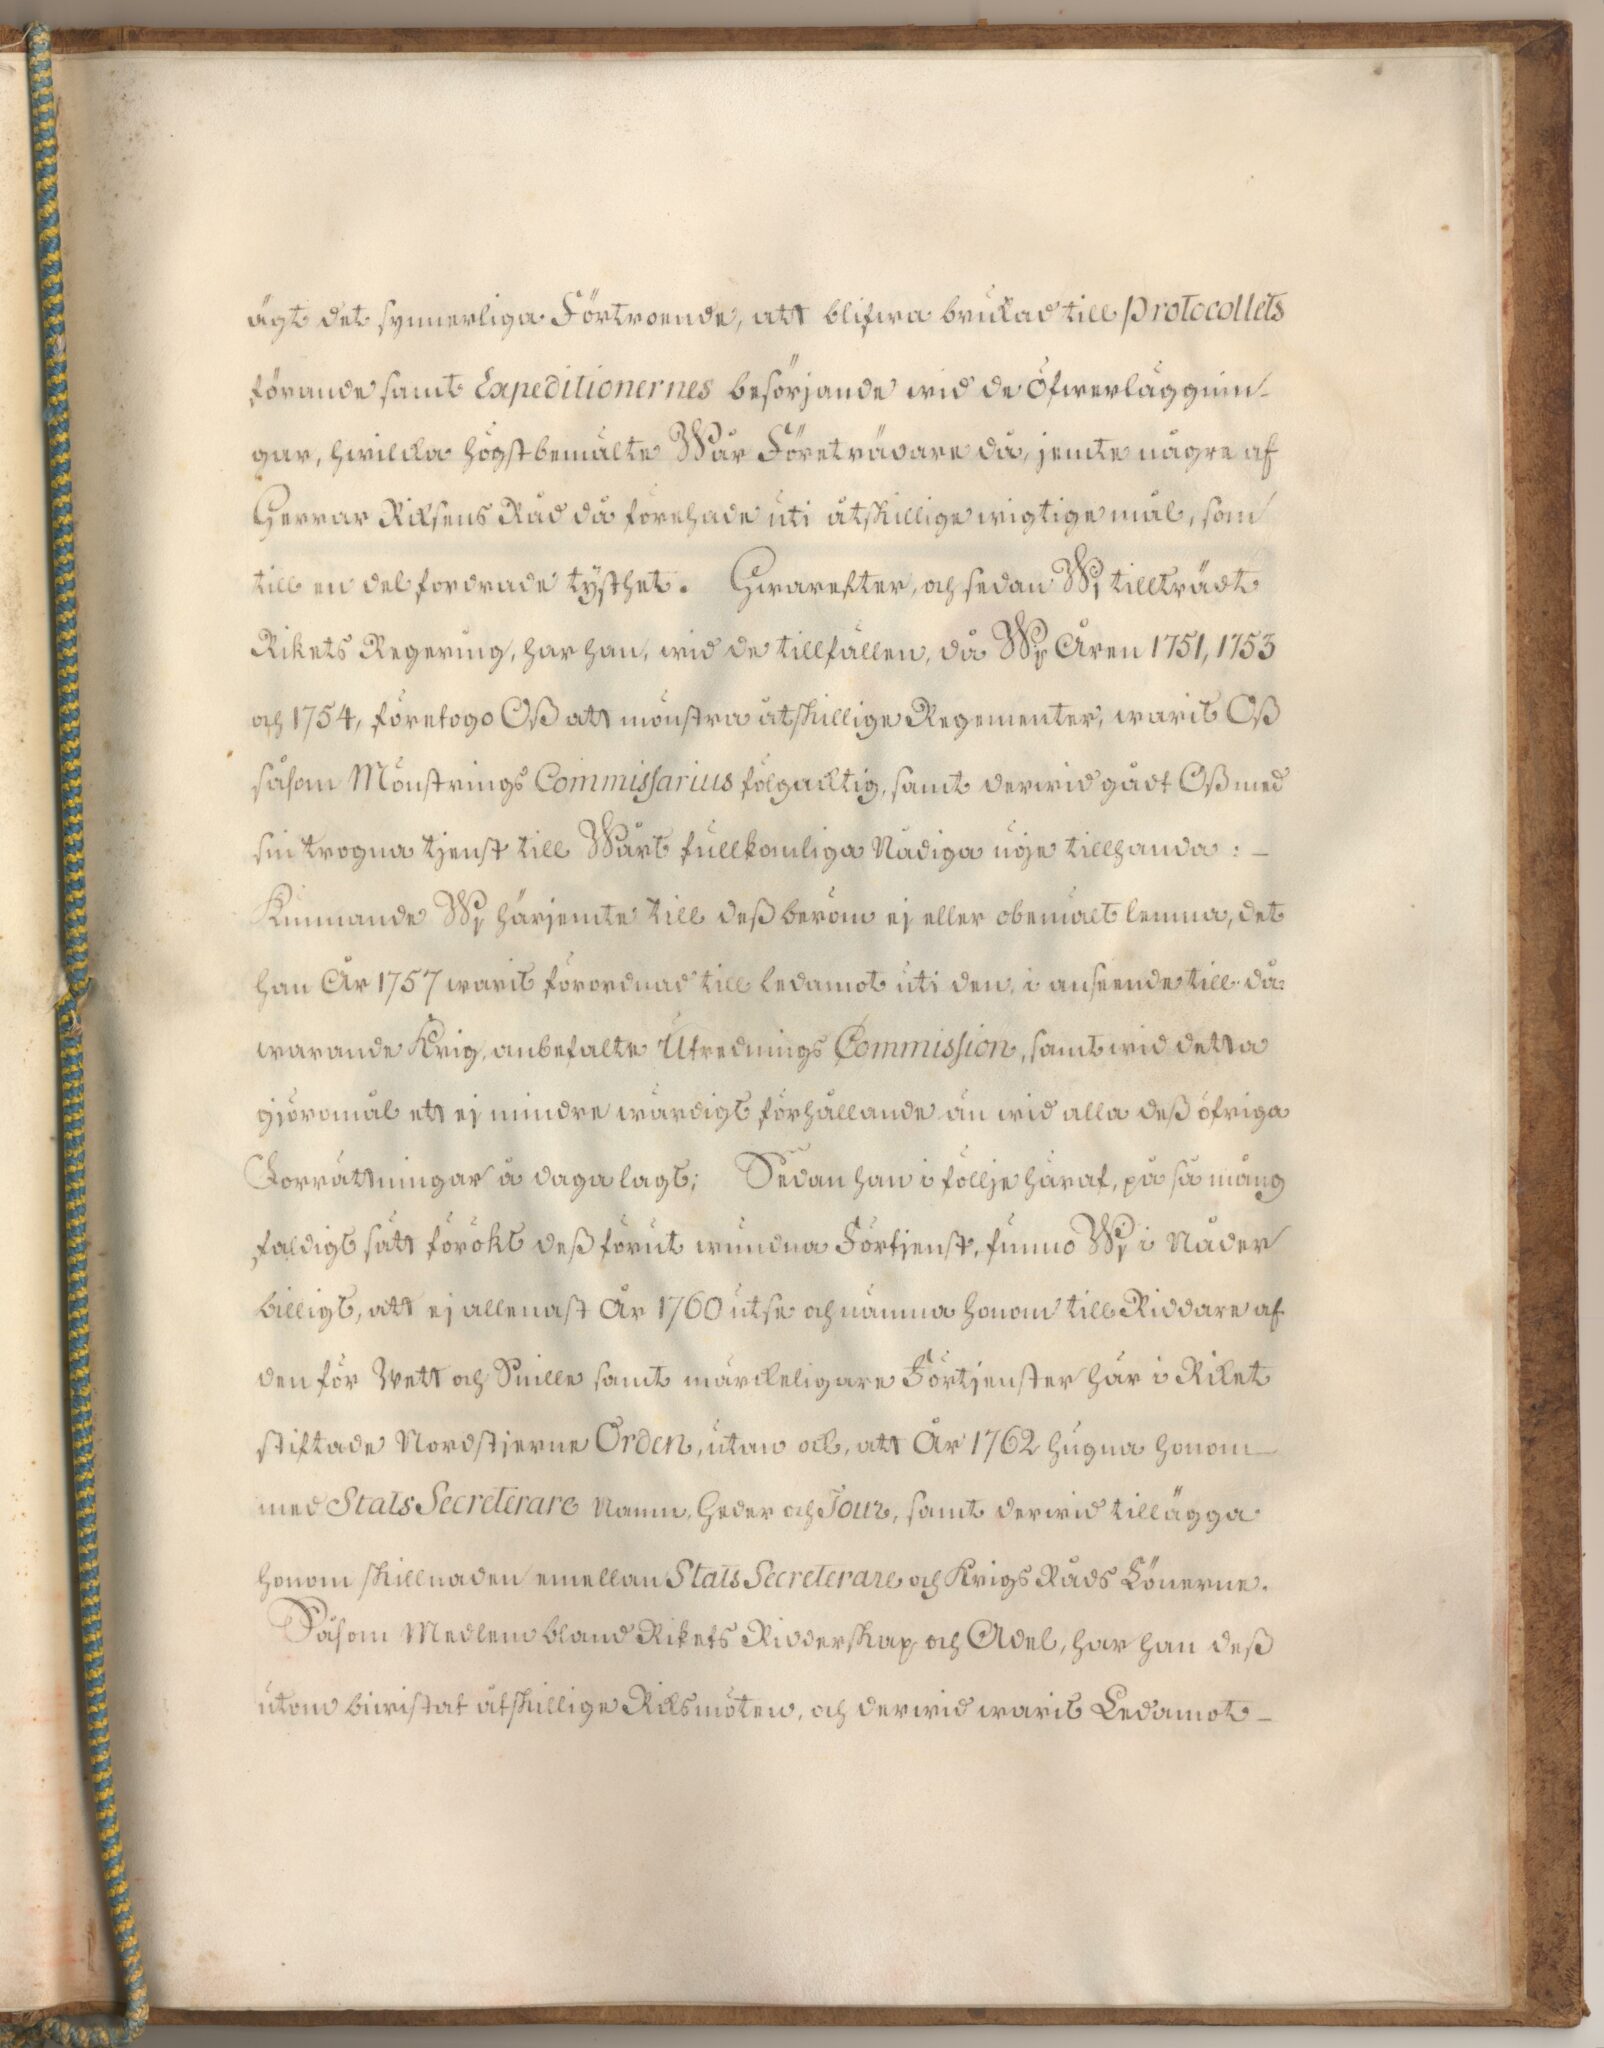 ägt det synnerliga Förtroende, att blifwa brukad till Protocollets
förande samt Expeditionernes besörjande wid de öfwerläggnin-
gar, hwilcka högstbemälte Wår Företrädare då, jemte någre af
Herrar Riksens Råd då förehade uti åtskillige wigtige mål, som
till en del fordrade tysthet. Hwarefter, och sedan Wi tillträdt
Rikets Regering, har han, wid de tillfällen, då Wi Åren 1751, 1753
och 1754, företogo Oß att mönstra åtskillige Regementer, warit Oß
såsom Mönstrings Commissarius följacktig, samt derwid gådt Oß med
sin trogna tjenst till Wårt fullkomliga Nådiga nöje tillhanda: –
Kunnande Wi härjemte till deß beröm ej eller obemält lemna, det
han År 1757 warit förordnad till ledamot uti den, i anseende till då-
warande Krig, anbefalte Utrednings Commission, samt wid detta
gjöromål ett ej mindre wärdigt förhållande än wid alla deß öfriga
Förrättningar å daga lagt; Sedan han i föllje häraf, på så mång
faldigt sätt förökt deß förut wundna Förtjenst, funno Wi i Nåder
billigt, att ej allenast År 1760 utse och nämna honom till Riddare af
den för Wett och Snille samt märckeligare Förtjenster här i Riket
stiftade Nordstjerne Orden, utan ock, att År 1762 hugna honom
med Stats Secreterare Namn, Heder och Tour, samt derwid tillägga
honom skillnaden emellan Stats Secreterare och Krigs Råds Lönerne.
Såsom Medlem bland Rikets Ridderskap och Adel, har han deß
utom biwistat åtskillige Riksmöten, och derwid warit Ledamot –